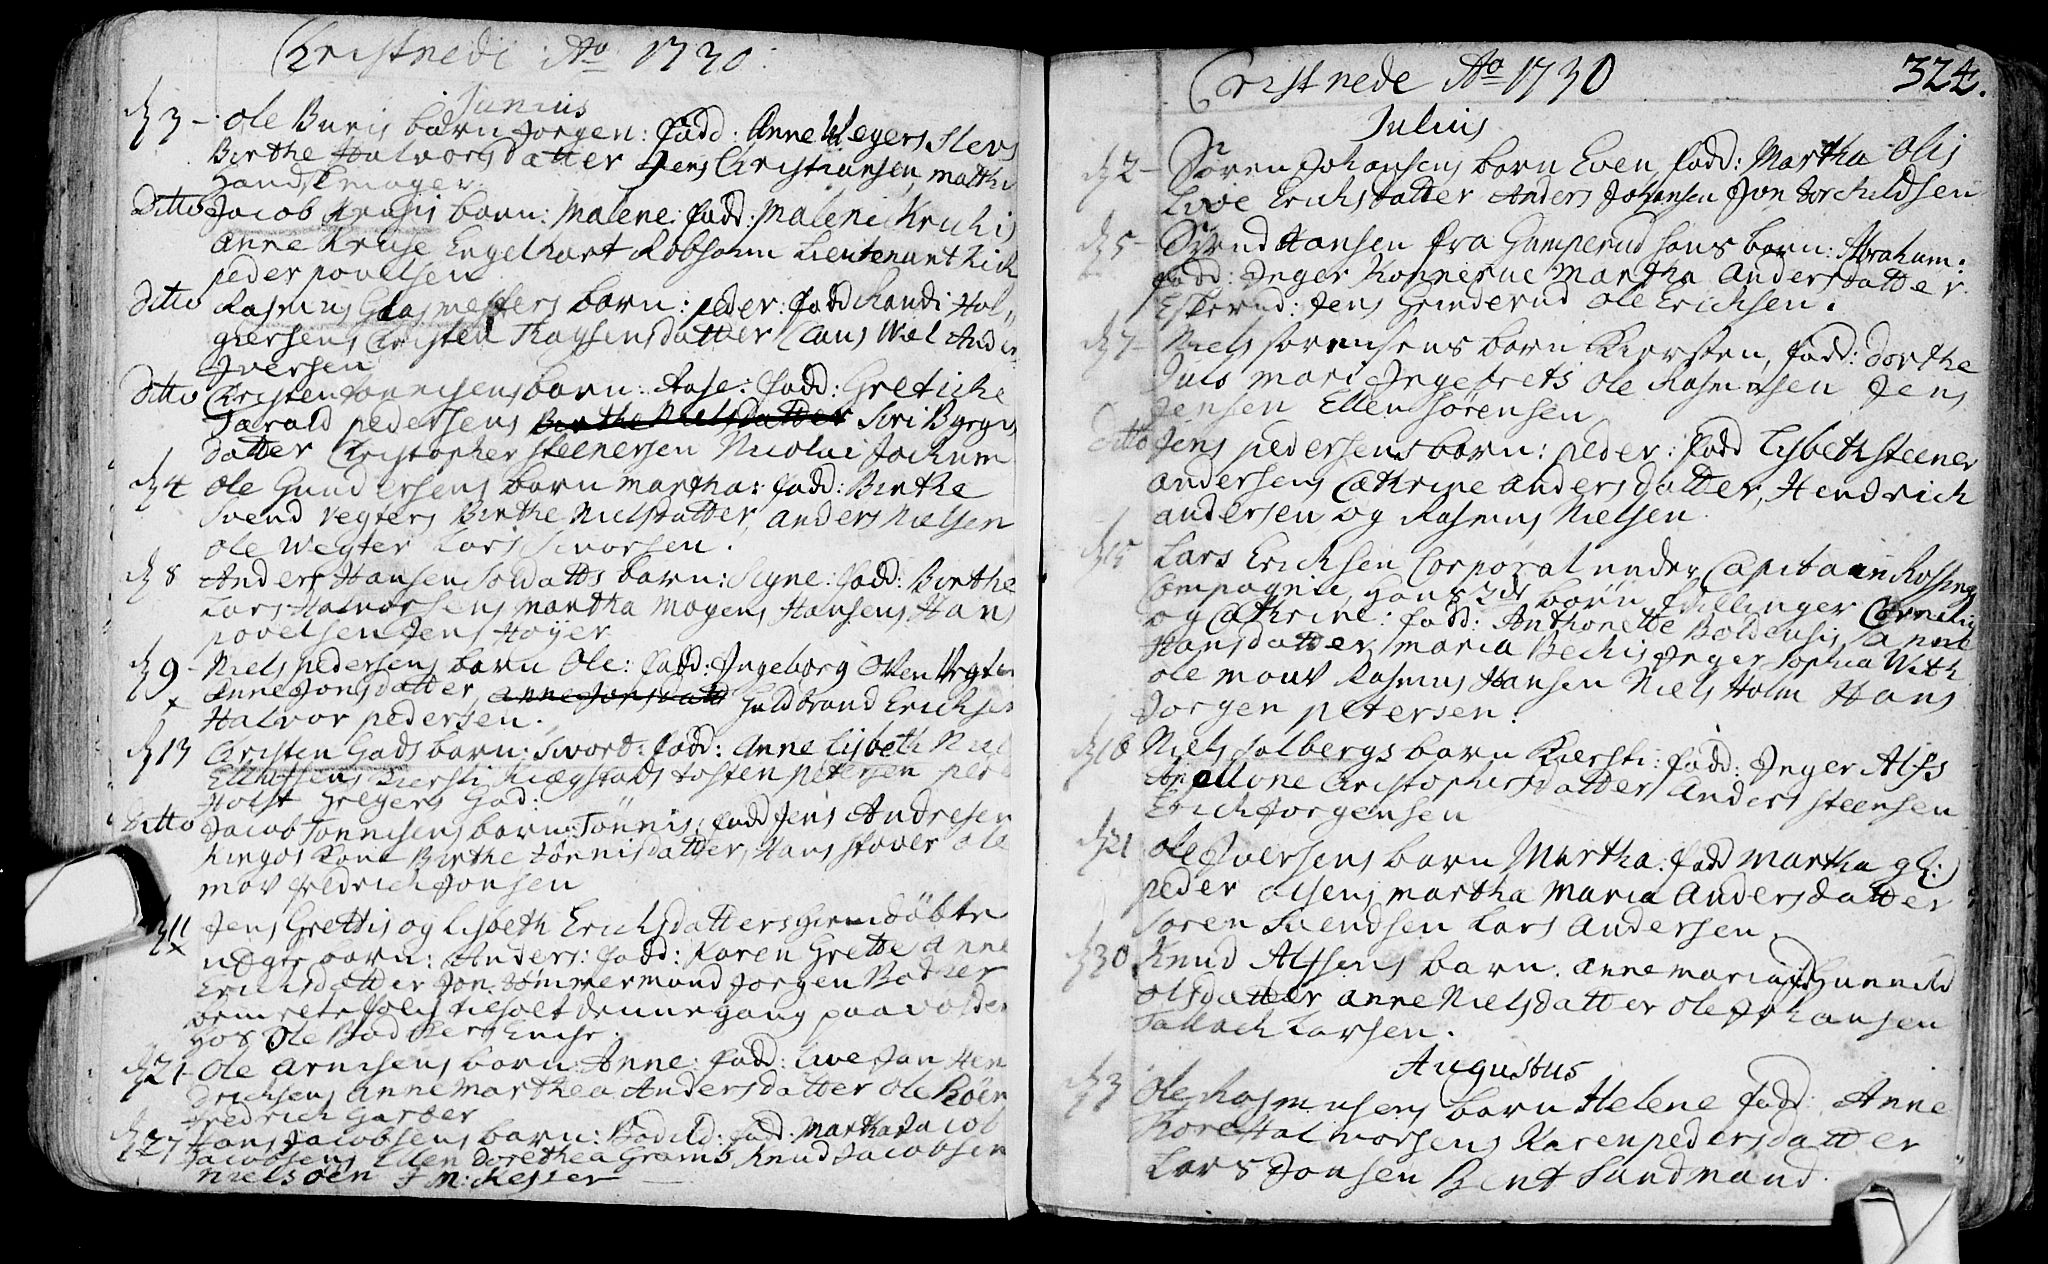 Christnede Ao 1730.
Junius
3 – Ole Buris barn Jørgen: fadd: Anne Wegers
Birthe Halvorsdatter Jens Christiansen, Matthi
Handskmager
Ditto Jacob barn: Malene: fadd: Maleni
Anne Kruse Engelhart Robsahm Lieutenant
peder povelsen
Ditto Rasmus Glasmesters barn: peder: fadd Randi Hol-
giersens Christen datter Claus Wiel Anders
Iversen
Ditto Christen Tønnisens barn: Aase: fadd: Gretiche
Harald pedersens Birthe Nielsdatter Siri Byrges
datter Christopher Steenersen Nicolai Jochum
4 Ole Gundersens barn Martha: fadd: Birthe
Svend Vegters Birthe Nielsdatter Anders Nielsen
Ole Wegter Lars Siversen.
8 Anders Hansen Soldatts barn: Signe: fadd: Birthe
Lars Halvorsens Martha Mogens Hansens Hans
povelsen Jens Høyer
9 – Niels pedersens barn Ole: fadd: Ingeborg
Anne Jonsdatter, Anne Jonsdatt Guldbrand Erichsen
Halvor pedersen.
13 Christen Gads barn: Sivort: fadd: Anne Lisbeth Niels
Kiersti Tosten petersen peder
Holst Gregers Gad:
Ditto Jacob Tønnisens barn: Tønnis: fadd Jens Andresen
Kone Birthe Tønnisdatter, Hans Støver Ole
mov Fredrich Jonsen
11 Jens Grettis og Lisbeth Erichsdatters hiemdøbte
barn: Anders: fadd: Karen Grette Anne
Erichsdatter Jon Tømmermand Jørgen Bødker
denne gang paa
hos Ole Bødkers Enche.
21 – Ole Arnesens barn: Anne: fadd: Live Jan Hen
drichsens Anne Marthea Andersdatter Ole
Fredrich Garber
27 Hans Jacobsens barn: Bodild: fadd: Martha Jacob
Jacobsens Ellen Dorethea Grams Knud Jacobsen
Niels Øen J M: Kesler
Cristnede Ao 1730
324.
Julius
2 – Søren Johansens barn Even fadd: Martha Olis
Live Erichsdatter Anders Johansen Jon Torchildsen
5 – Svend Hansen fra Gamperud hans barn: Abraham:
fadd: Inger Konnerue Martha Andersdatter
Eskerud: Jens Grinderud Ole Erichsen.
7 – Niels Sørensens barn Kiersten, fadd: Dorthe
Juls Mari Ingebrets Ole Rasmusen Jens
Jensen Ellen Sørensen
Ditto Jens pedersens barn: peder: fadd Lisbeth Steener
Andersens Cathrine Andersdatter, Hendrich
Andersen og Rasmus Nielsen
15 Lars Erichsen Corporal under Capitain
Compagnie, hans 2de børn, tvillinger Cornelius
og Cathrine: fadd: Anthonette Boldensis Anne
Hansdatter Maria Bechis Inger Sophia With
Ole mouv Rasmus Hansen Niels Holm Hans
Jørgen petersen.
18 Niels Solbergs barn Kiersti: fadd: Inger Alfs
Apellone Christophersdatter Anders Steensen
Erich Jørgensen
21 Ole Iversens barn Martha: fadd Martha
peder Olsens Martha Maria Andersdatter
Søren Svendsen Lars Andersen.
30 Knud Alfsens barn: Anne Maria fd: Gunnild
Olsdatter Anne Nielsdatter Ole Johansen
Tallach Larsen.
Augustus
3 Ole Rasmusens barn Helene fadd: Anne
Tore Halvorsens Karen pedersdatter
Lars Jonsen Bent Sandmand.